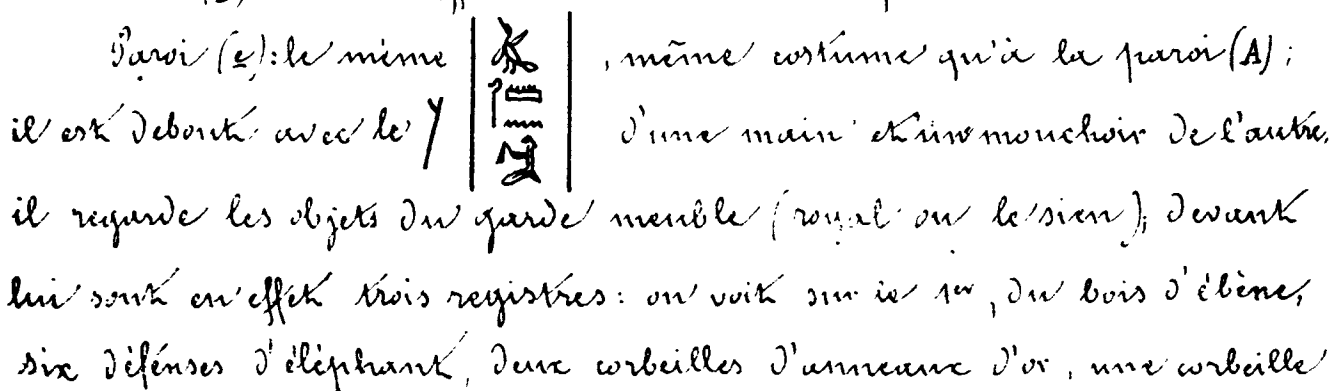 Paroi (e): le même 𓀀, même costume qu'à la paroi (A);
il est debout avec le d'une main et un mouchoir de l'autre.
il regarde les objets du garde meuble (royal ou le sien), devant
lui sont en effet trois registres: on voit sur le 1er, du bois d'ébène,
six défenses d'éléphant, deux corbeilles d'anneaux d'or, une corbeille